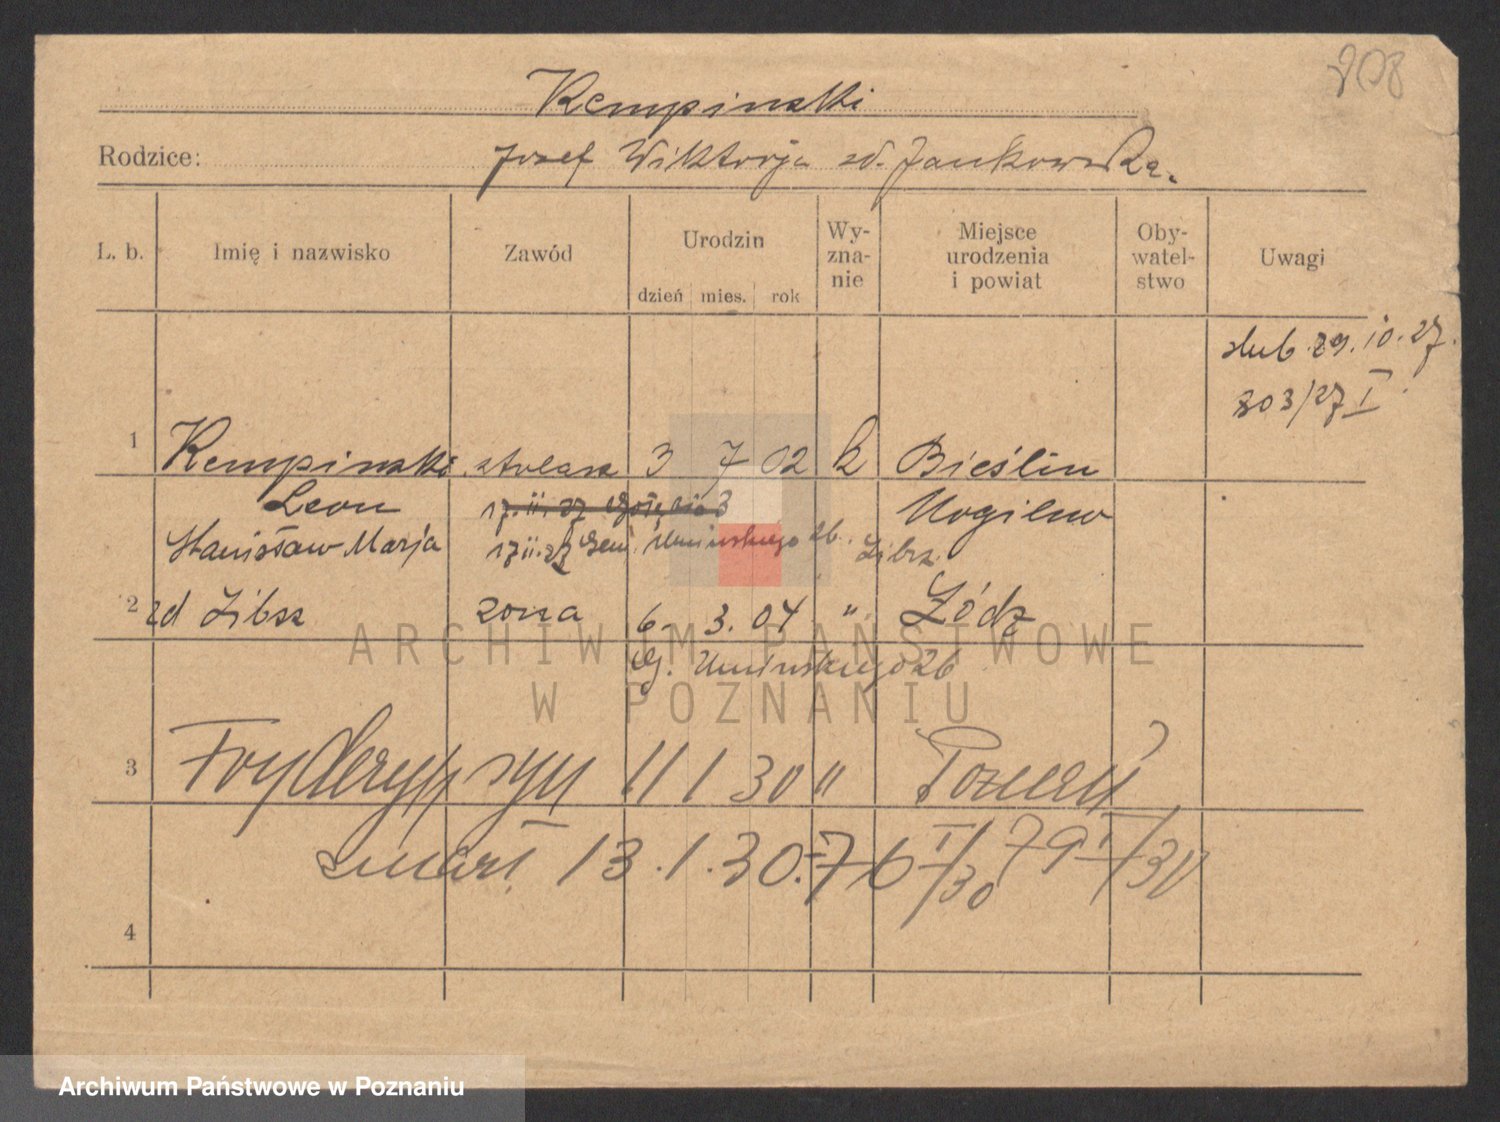 208
Kempinski
Rodzice: Josef Wiktorja zd. Jankowska.
L. b. Imię i nazwisko Zawód Urodzin dzień mies. rok Wy-zna-nie Miejsce urodzenia i powiat Oby-watel-stwo Uwagi
slub 29.10.27.
803/27 I
1 Kempinski stolarz 3 7 02 k Bieślin
Leon 17.II.27 3 Mogilno
Stanisława Marja 17 II.27 Umińskiego 26. Zibsz
2 zd Zibsz zona 6. 3. 04 " Łódz
G. Umińskiego 26
3 Fryderyk syn 11 1 30 " Poznań
zmarł 13.1.30. 76 I/30 79 I/30
4
ARCHIWUM PAŃSTWOWE
W POZNANIU
Archiwum Państwowe w Poznaniu